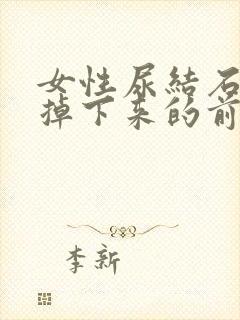 女性尿結石
掉下来的前
李新